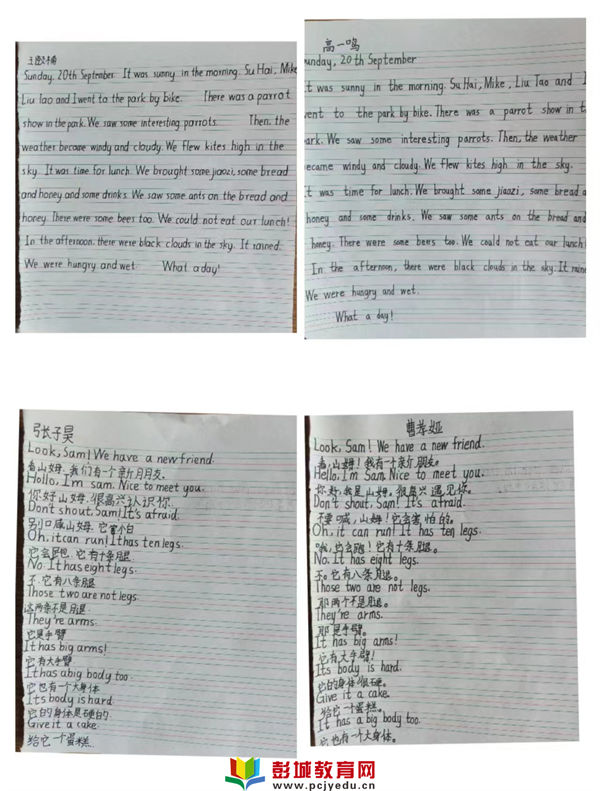 Sunday, 20th September. It was sunny in the morning. Su Hai, Mike
Liu Tao and I went to the park by bike. There was a parrot
show in the park. We saw some interesting parrots. Then, the
weather became windy and cloudy. We flew kites high in the
sky. It was time for lunch. We brought some jiaozi, some bread
and honey and some drinks. We saw some ants on the bread and
honey. There were some bees too. We could not eat our lunch!
In the afternoon. there were black clouds in the sky. It rained.
We were hungry and wet. What a day!
高一鸣
unday, 20th September
t was sunny in the morning. Su Hai, Mike, Liu Tao and I
went to the park by bike. There was a parrot show in t
ark. We saw some interesting parrots. Then, the weather
ecame windy and cloudy. We flew kites high in the sky.
t was time for lunch. We brought some jiaozi, some bread a
honey and some drinks. We saw some ants on the bread and
honey. There were some bees too. We could not eat our lunch
In the afternoon, there were black clouds in the sky. It raine
We were hungry and wet.
What a day!
张子昊
Look, Sam! We have a new friend.
看山姆.我们有一个新月朋友.
Hello, I'm sam. Nice to meet you.
你好山姆.很高兴认识你.
Don't shout, Sam! It's afraid.
别口咸山姆.它害怕
Oh, it can run! It has ten legs.
它会跑.它有十条腿.
No. It has eight legs.
不.它有八条腿
Those two are not legs.
这两条不是腿.
They're arms.
它是手臂
It has big arms!
它有大手臂
It has a big body too.
它也有一个大身体
Its body is hard.
它的身体是硬的.
Give it a cake.
给它一个蛋糕.
曹孝娅
Look, Sam! We have a new friend.
看,山姆!我有一个新朋友。
Hello, I'm Sam. Nice to meet you.
你好,我是山姆。很高兴遇见你。
Don't shout, Sam! It's afraid.
不要喊,山姆!它会害怕的。
Oh, it can run! It has ten legs.
哦,它会跑!它有十条腿。
No. It has eight legs.
不。它有八条腿。
Those two are not legs.
那两个不是腿。
They're arms.
那是手臂。
It has big arms!
它有大手臂!
Its body is hard.
它的身体很硬。
Give it a cake.
给它一个蛋糕。
It has a big body too.
它也有一个大身体。
彭城教育网
www.pcjyedu.cn